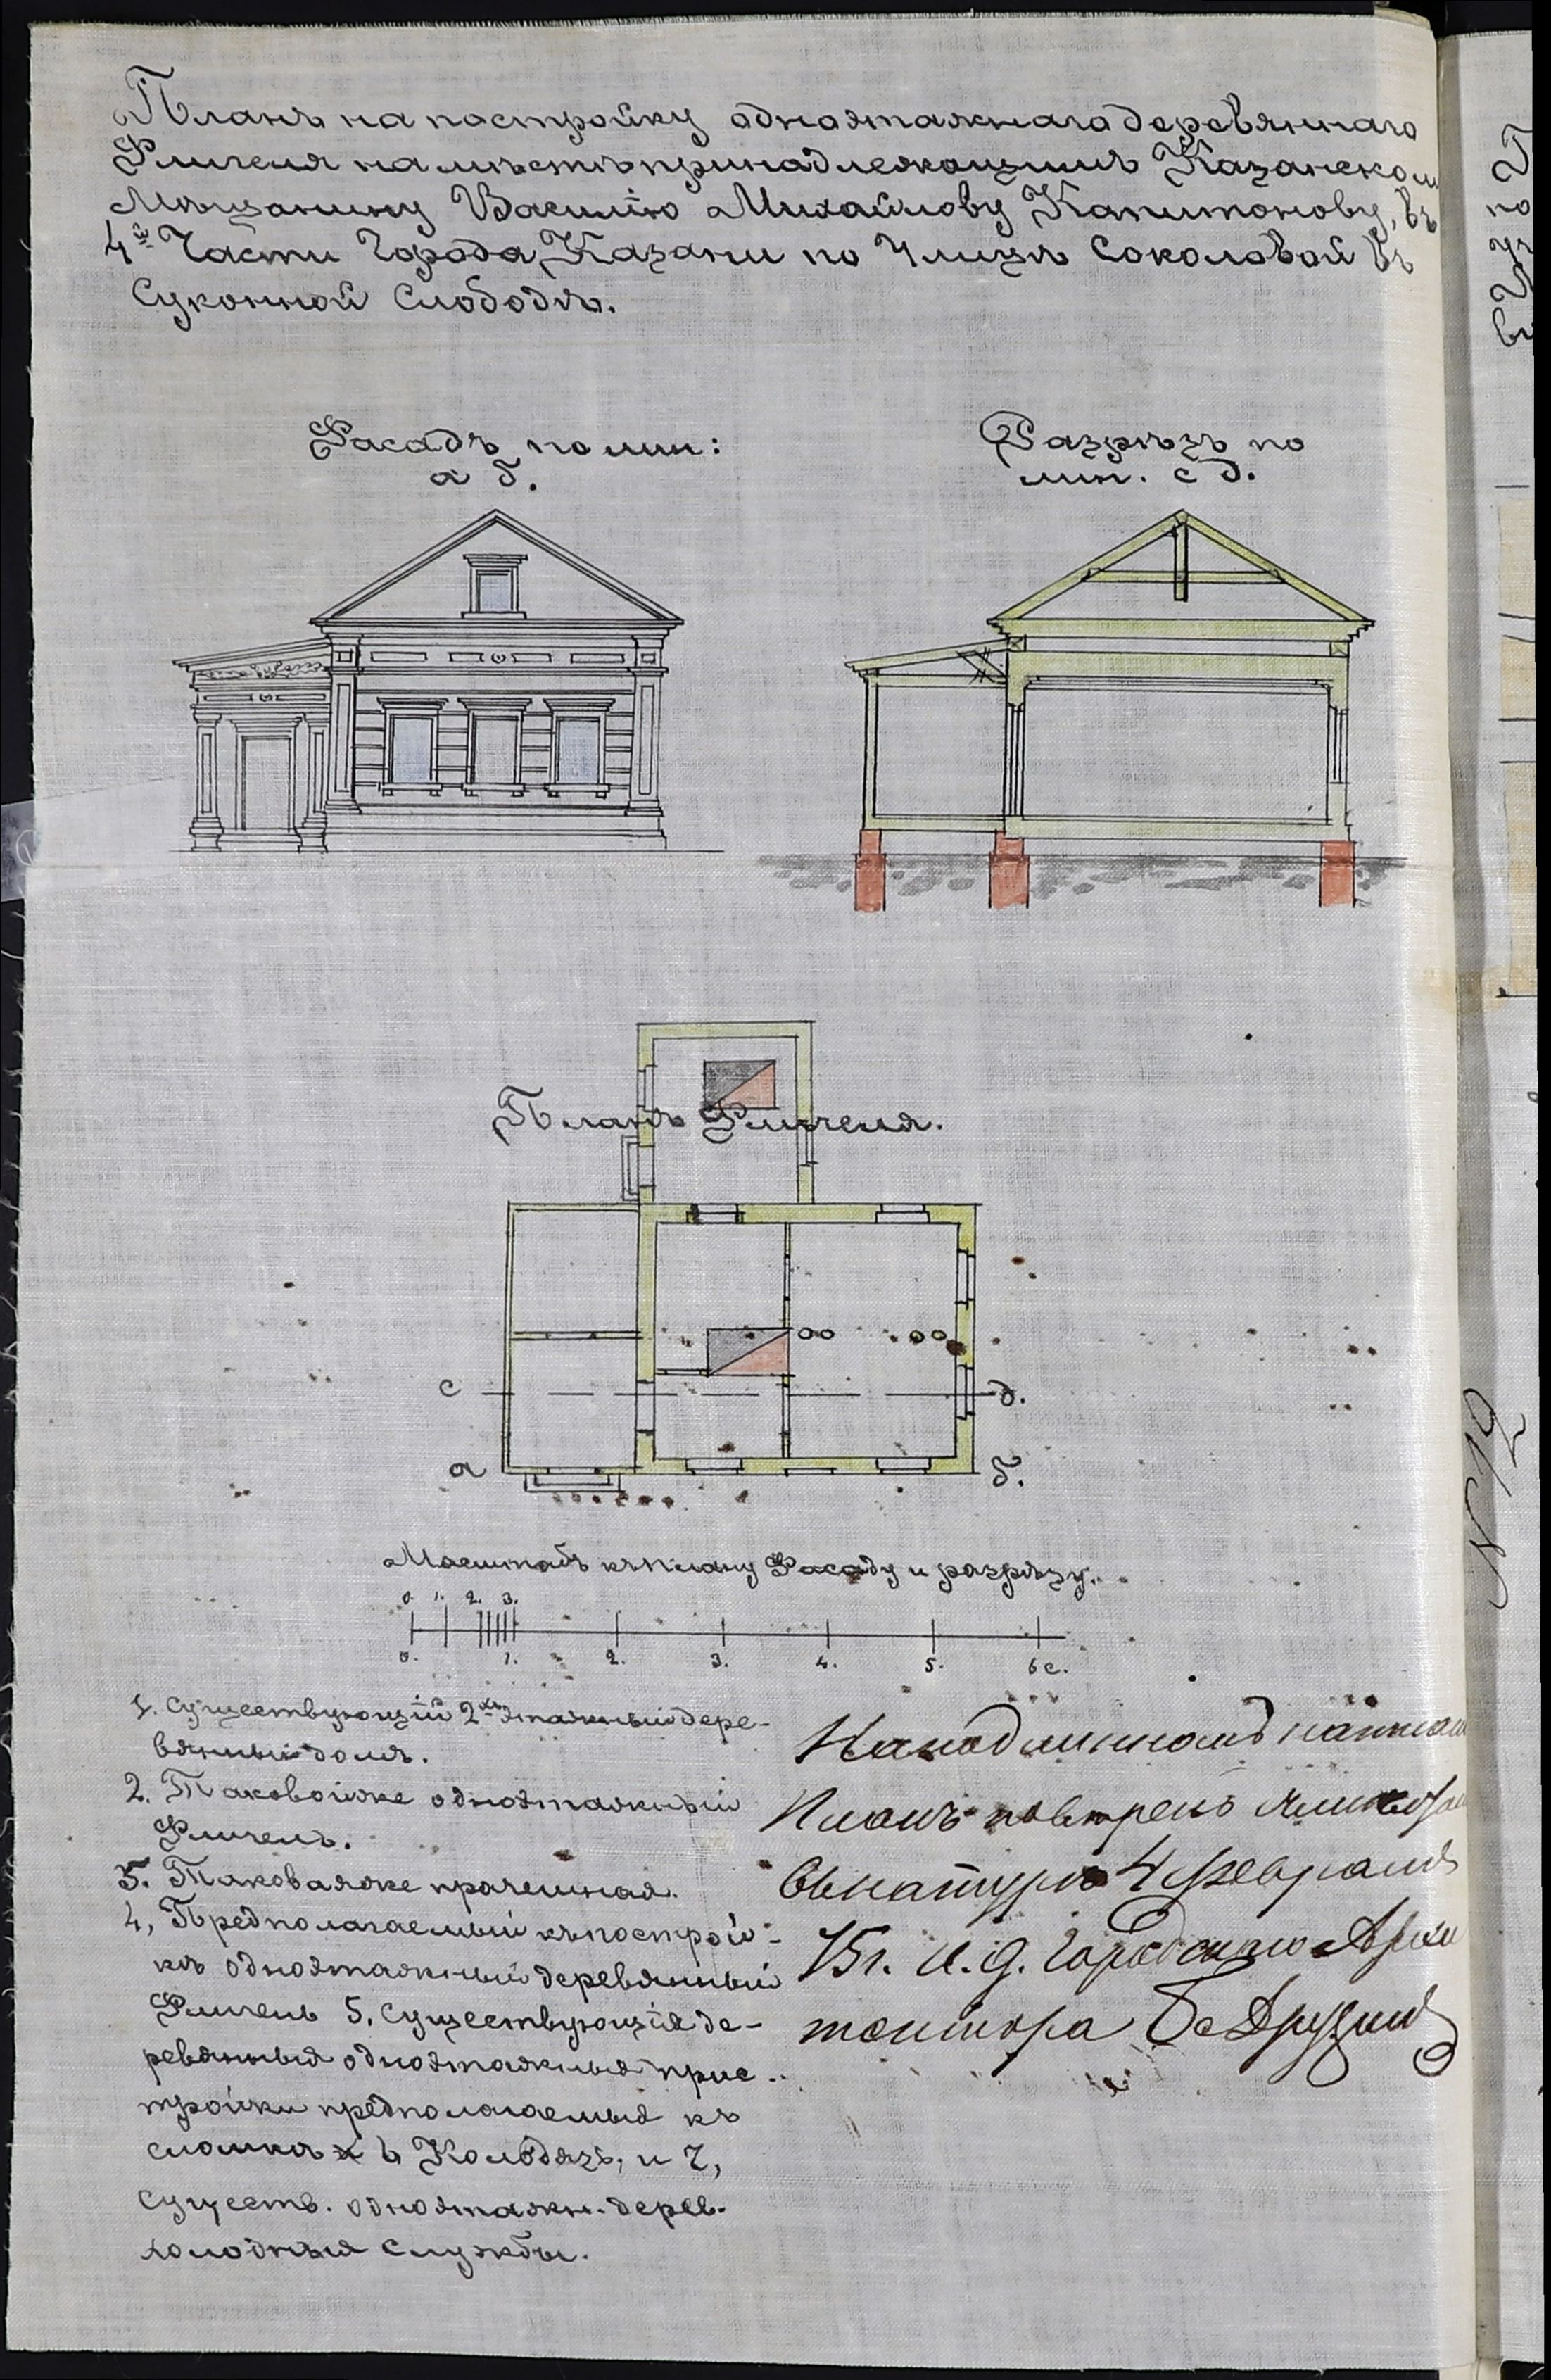 Планъ на постройку одноэтажнаго деревяннаго
Флигеля на мѣстѣ принадлежащимъ Казанском
Мѣщанину Василію Михайлову Капитонову, въ
4й Части Города Казани по Улицѣ Соколовой въ
Суконной Слободѣ.
Фасадъ по лин:
а б.
Разрѣзъ по
лин. с д.
Планъ Флигеля.
с
д.
а
б.
Масштабъ къ плану Фасаду и разрѣзу.
0. 1. 2. 3.
0. 1. 2. 3. 4. 5. 6 с.
1. Существующій 2хъ этажный дере-
вянный домъ.
2. Таковой же одноэтажный
Флигель.
3. Таковая же прачешная.
4, Предполагаемый къ построй-
кѣ одноэтажный деревянный
Флигель 5. Существующія де-
ревянныя одноэтажныя прис-
тройки предполагаемыя къ
сломкѣ 6, Колодязь, и 7,
существ. одноэтажн. дерев.
холодныя службы.
На подлинномъ
Планъ повѣренъ
въ натурѣ 4 февраля
15г. И. д. Городского Архи
тектора Бедрузин
№ 12